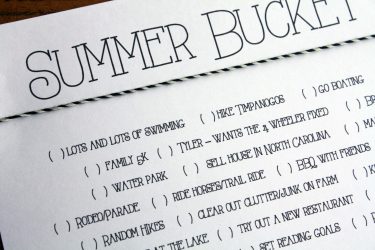 Summer Bucket
( ) Lots and lots of swimming ( ) Hike Timpanogos ( ) Go boating
( ) Family 5K ( ) Tyler – wants the 4 wheeler fixed ( )
( ) Water park ( ) Sell house in North Carolina ( )
( ) Rodeo/Parade ( ) Ride horses/trail ride ( ) BBQ with friends
( ) Random hikes ( ) Clear out clutter/junk on farm ( )
at the lake ( ) Try out a new restaurant ( )
( ) Set reading goals ( )